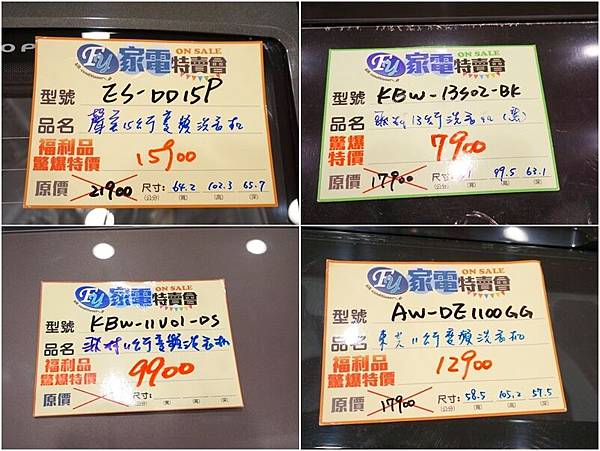 OP
FU 家電特賣會 ON SALE
型號 ES-DD15P
品名 聲寶15公斤變頻洗衣機
福利品
驚爆特價 15900
原價 21900 尺寸: 64.2 102.3 65.7
(公分) (寬) (高) (深)
FU 家電特賣會 ON SALE
型號 KBW-13S02-BK
品名 13公斤洗衣機(黑)
驚爆
特價 7900
原價 17900 尺寸: 99.5 63.1
(公分) (寬) (高) (深)
FU 家電特賣會 ON SALE
型號 KBW-11V01-DS
品名 歌林11公斤變頻洗衣機
福利品
驚爆特價 9900
原價 尺寸:
(公分) (寬) (高) (深)
FU 家電特賣會 ON SALE
型號 AW-DE1100GG
品名 東芝11公斤變頻洗衣機
福利品
驚爆特價 12900
原價 17900 尺寸: 58.5 105.2 57.5
(公分) (寬) (高) (深)